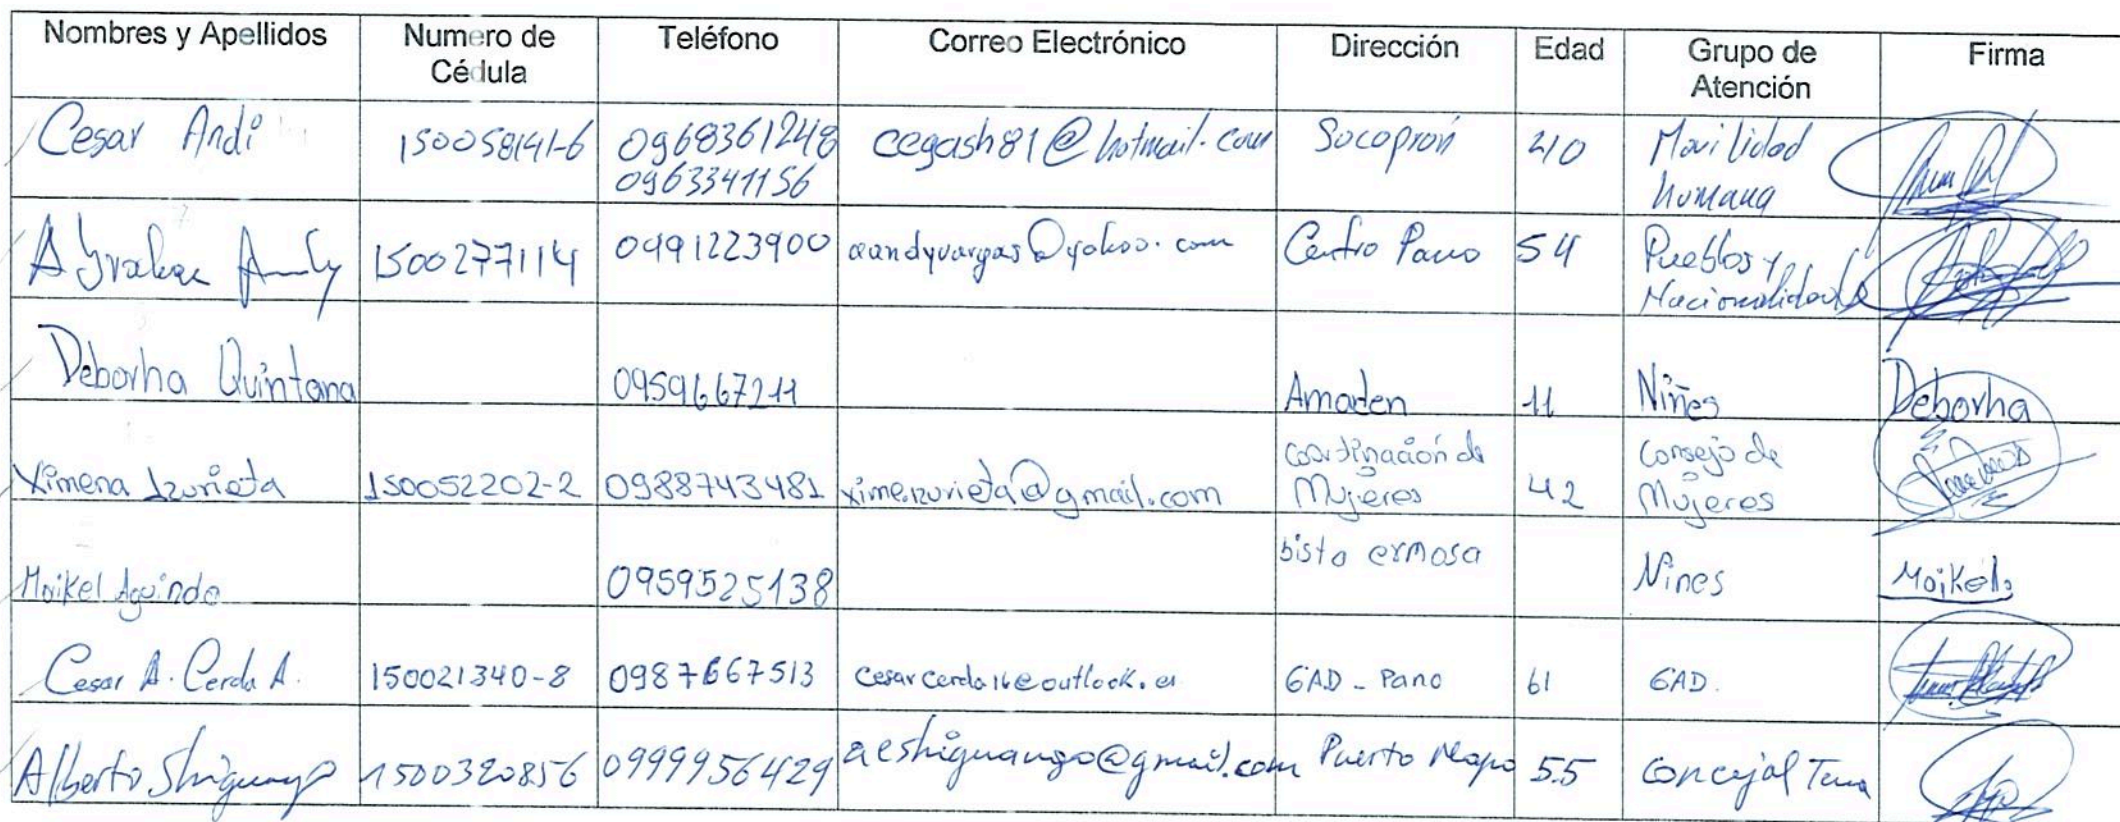 Nombres y Apellidos Numero de Cédula Teléfono Correo Electrónico Dirección Edad Grupo de Atención Firma
Cesar Andi 150058141-6 0968361248 0963341156 cegash81@hotmail.com Socopron 40 Movilidad humana
Andy 1500277114 0991223900 aandyvargas@yahoo.com Centro Pano 54 Pueblos y Nacionalidades
Deborha Quintana 0959667211 Amaden 11 Niñes Deborha
Ximena Izurieta 150052202-2 0988743481 ximeizurieta@gmail.com coordinación de Mujeres 42 Consejo de Mujeres
Maikel 0959525138 bista ermosa Nines
Cesar A. Cerda A. 150021340-8 0987667513 cesarcerda16@outlook.es GAD - Pano 61 GAD.
Alberto Shiguango 1500320856 0999956429 aeshiguango@gmail.com Puerto Napo 55 Concejal Tena